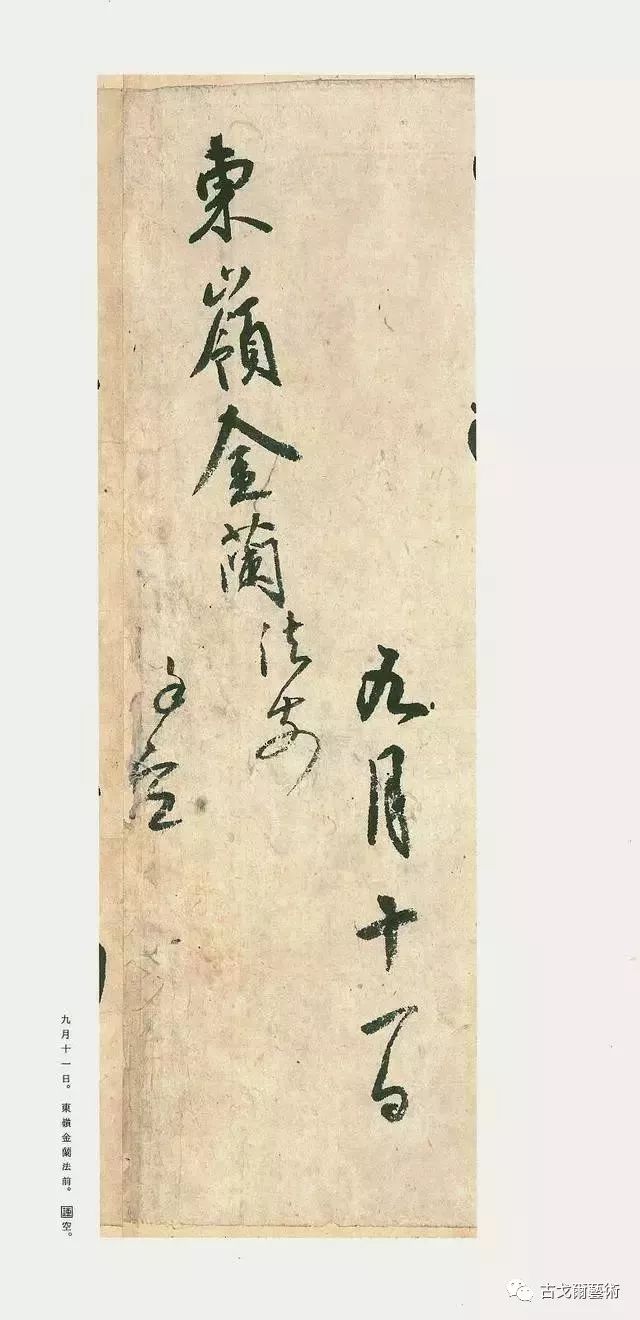 九月十一日
東嶺金蘭法前
謹空
九月十一日。東嶺金蘭法前。謹空。
古戈爾藝術